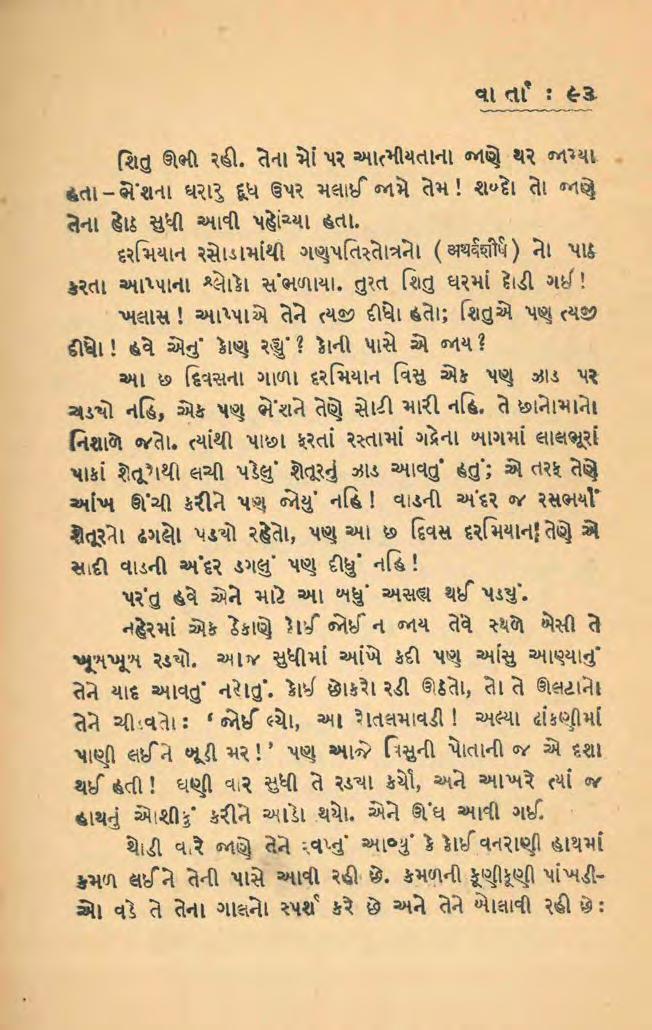 વાર્તા : ૯૩
શિતુ ઊભી રહી. તેના મોં પર આત્મીયતાના જાણે થર જામ્યા
હતા – ભેંશના ઘરારુ દૂધ ઉપર મલાઈ જામે તેમ! શબ્દો તો જાણે
તેના હોઠ સુધી આવી પહોંચ્યા હતા.
દરમિયાન રસોડામાંથી ગણપતિસ્તોત્રનો (अथर्वशीर्ष) નો પાઠ
કરતા આપ્પાના શ્લોકો સંભળાયા. તુરત શિતુ ઘરમાં દોડી ગઈ!
ખલાસ! આપ્પાએ તેને ત્યજી દીધો હતો; શિતુએ પણ ત્યજી
દીધો! હવે એનું કોણ રહ્યું? કોની પાસે એ જાય?
આ છ દિવસના ગાળા દરમિયાન વિસુ એક પણ ઝાડ પર
ચડયો નહિ, એક પણ ભેંશને તેણે સોટી મારી નહિ. તે છાનોમાનો
નિશાળે જતો. ત્યાંથી પાછા ફરતાં રસ્તામાં ગદ્રેના બાગમાં લાલભૂરાં
પાકાં શેતૂરોથી લચી પડેલું શેતૂરનું ઝાડ આવતું હતું; એ તરફ તેણે
આંખ ઊંચી કરીને પણ જોયું નહિ! વાડની અંદર જ રસભર્યાં
શેતૂરનો ઢગલો પડયો રહેતો, પણ આ છ દિવસ દરમિયાન તેણે એ
સાદી વાડની અંદર ડગલું પણ દીધું નહિ!
પરંતુ હવે એને માટે આ બધું અસહ્ય થઈ પડયું.
નહેરમાં એક ઠેકાણે કોઈ જોઈ ન જાય તેવે સ્થળે બેસી તે
ખૂબખૂબ રડયો. આજ સુધીમાં આંખે કદી પણ આંસુ આણ્યાનું
તેને યાદ આવતું નહોતું. કોઈ છોકરો રડી ઊઠતો, તો તે ઊલટાનો
તેને ચીડવતો: ‘જોઈ લ્યો, આ રોતલમાવડી! અલ્યા ઢાંકણીમાં
પાણી લઈને બૂડી મર!’ પણ આજે વિસુની પોતાની જ એ દશા
થઈ હતી! ઘણી વાર સુધી તે રડયા કર્યો, અને આખરે ત્યાં જ
હાથનું ઓશીકું કરીને આડો થયો. એને ઊંઘ આવી ગઈ.
થોડી વારે જાણે તેને સ્વપ્નું આવ્યું કે કોઈ વનરાણી હાથમાં
કમળ લઈને તેની પાસે આવી રહી છે. કમળની કૂણીકૂણી પાંખડી-
ઓ વડે તે તેના ગાલનો સ્પર્શ કરે છે અને તેને બોલાવી રહી છે: